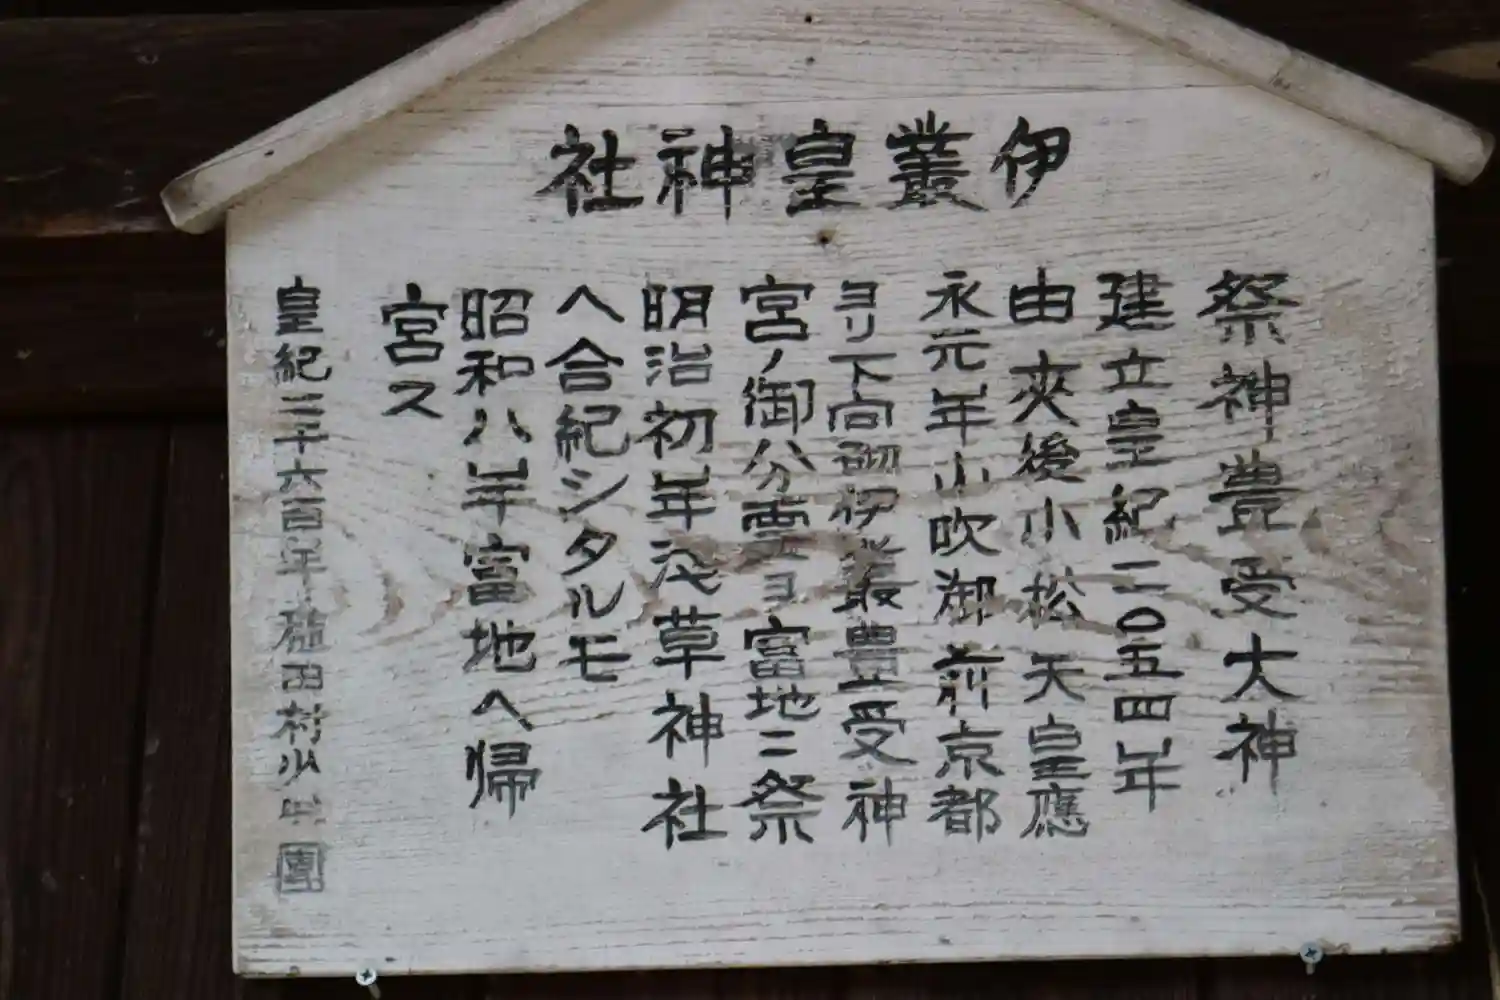 伊叢皇神社
祭神豊受大神
建立皇紀二〇五四年
由來後小松天皇應
永元年山吹御前京都
ヨリ下向砌伊叢豊受神
宮ノ御分霊ヨ富地ニ祭
明治初年浅草神社
へ合紀シタルモ
昭和八年富地へ帰
宮ス
皇紀二千六百年 田村